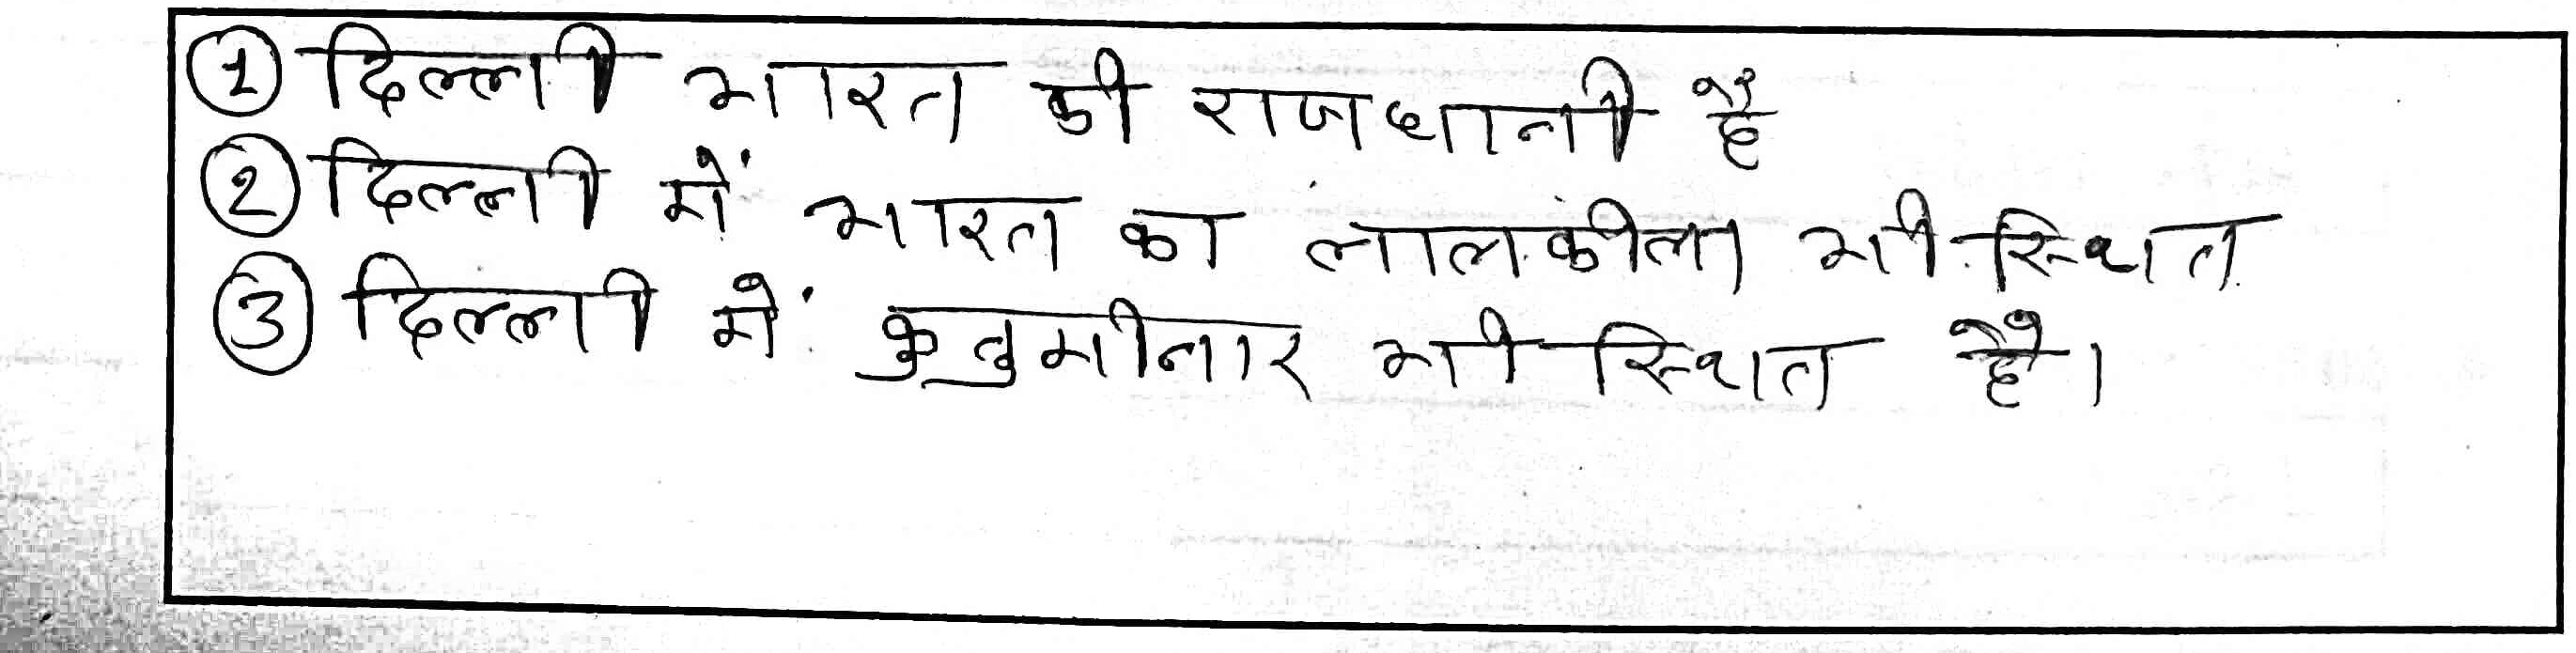 ① दिल्ली भारत की राजधानी है
② दिल्ली में भारत का लालकीला भी स्थित
③ दिल्ली में कुतुमीनार भी स्थित है।